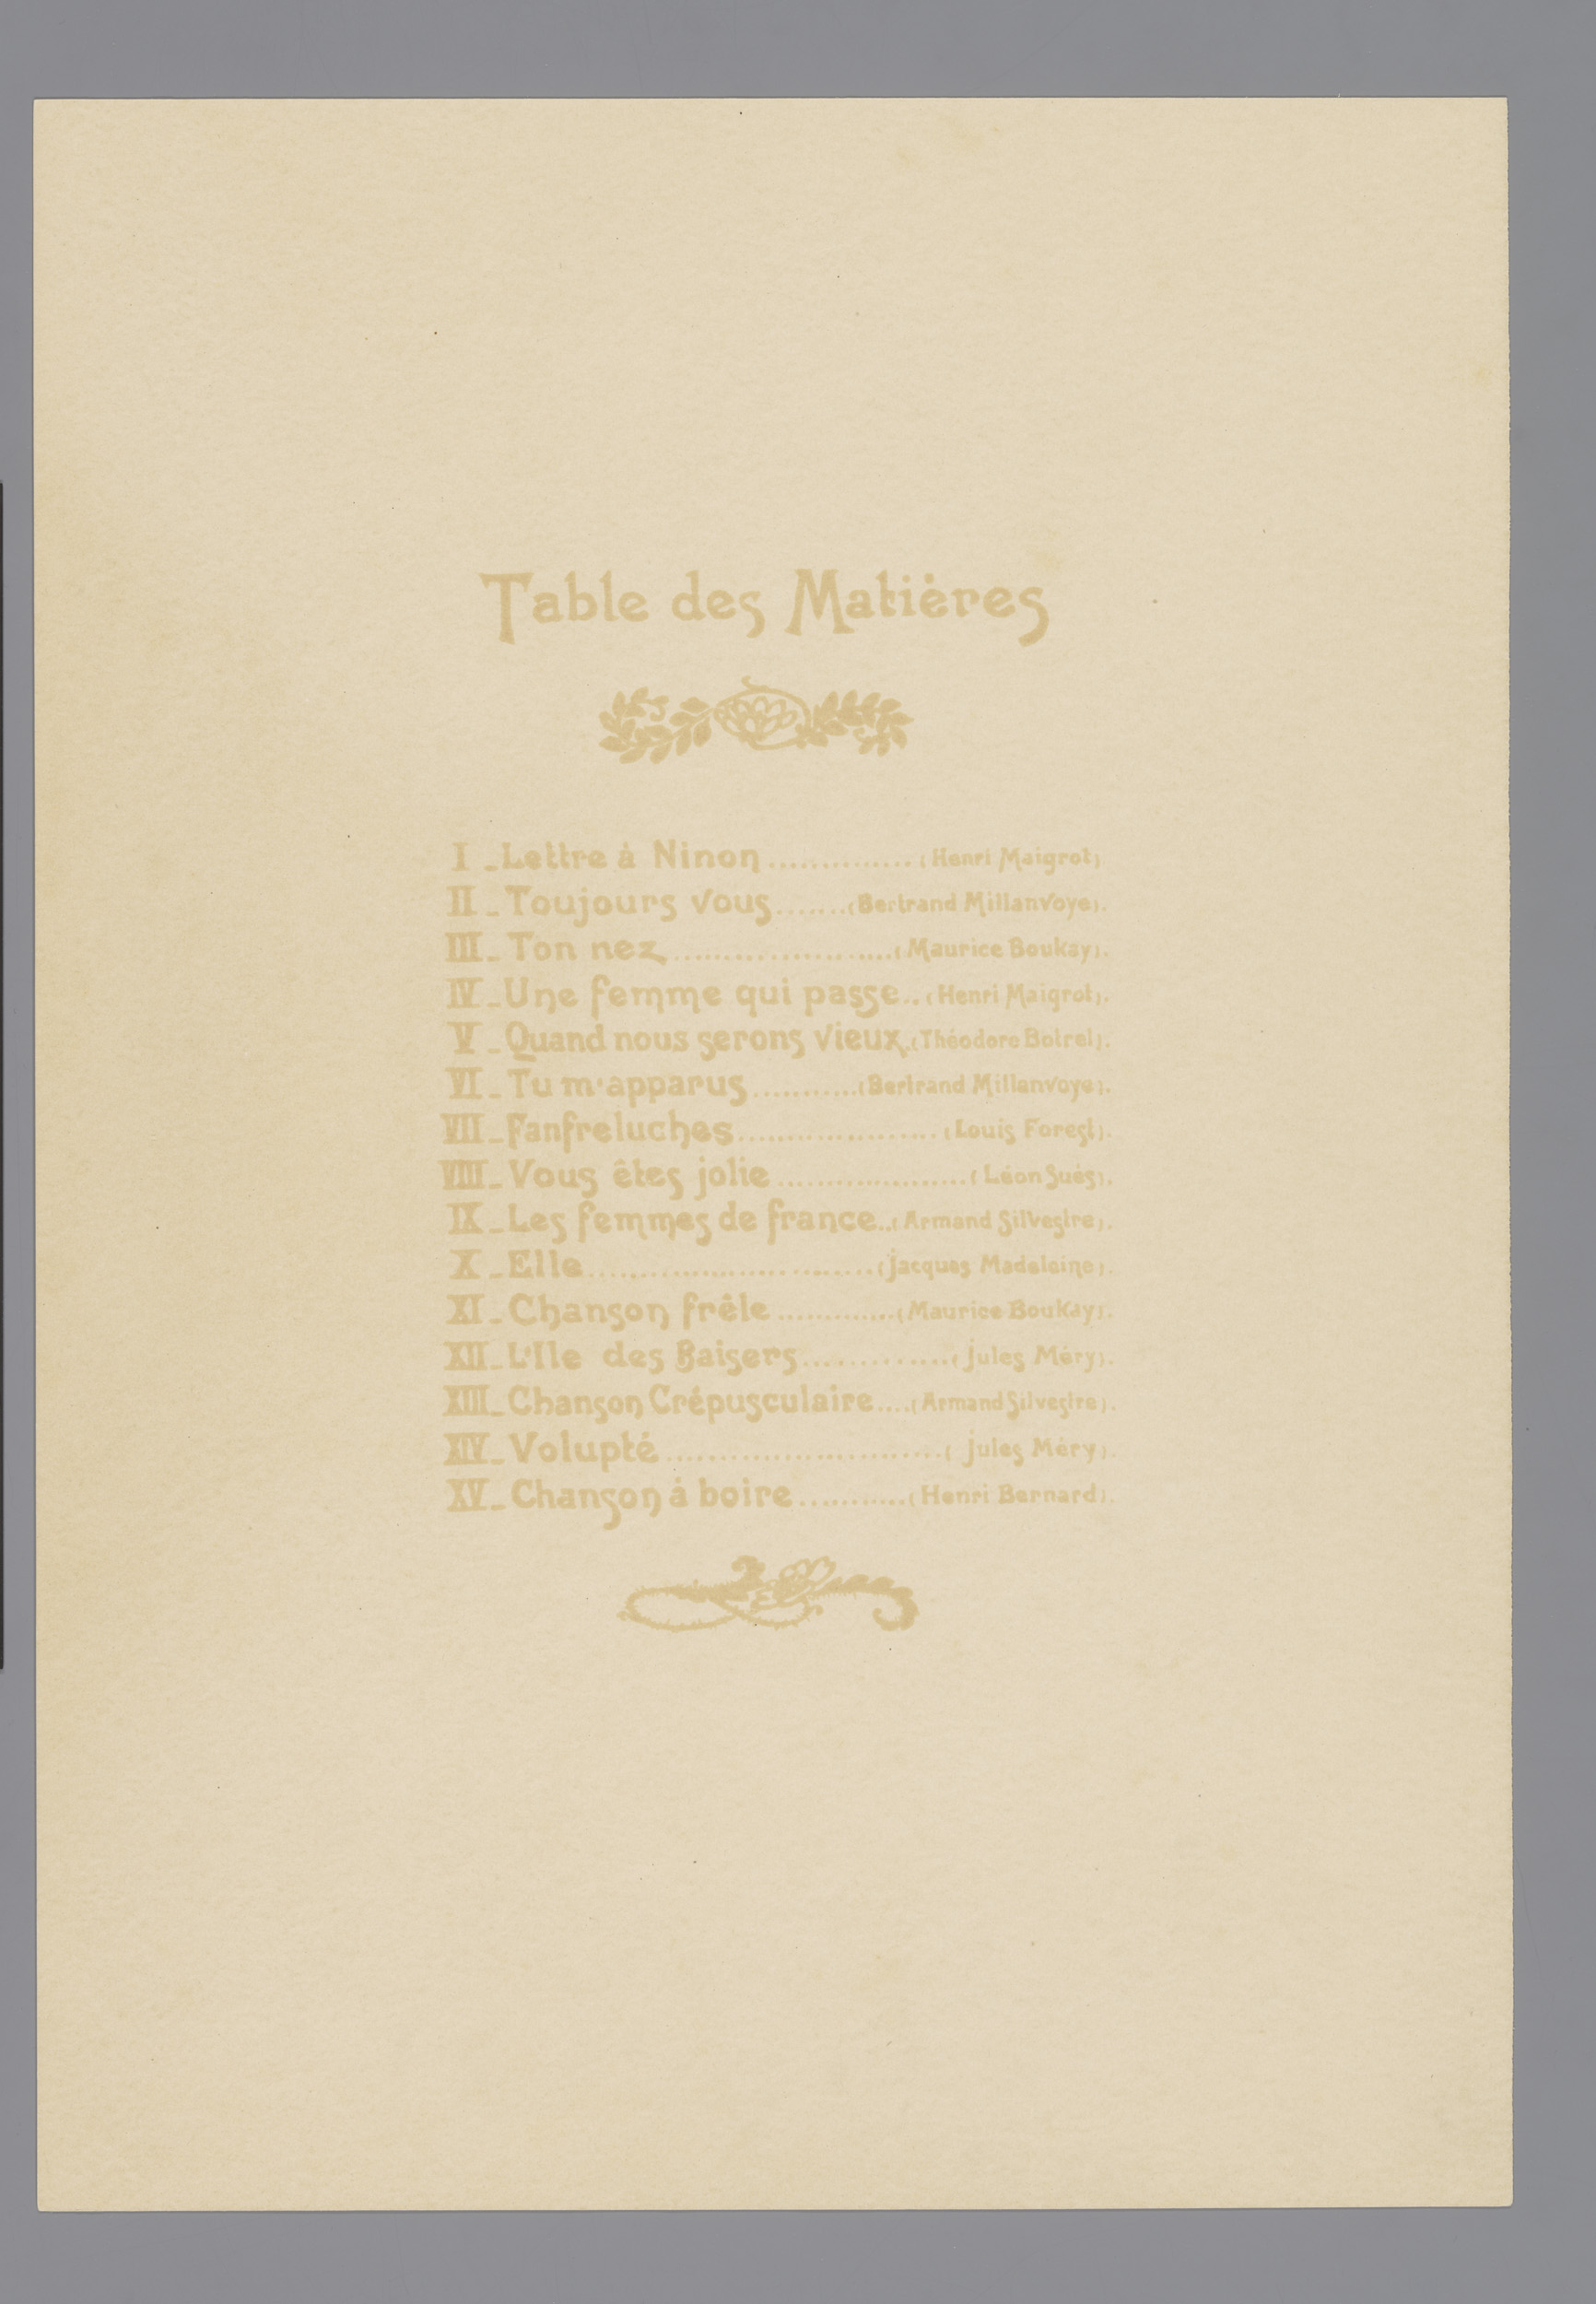 Table des Matières
I _ Lettre à Ninon .............. (Henri Maigrot)
II _ Toujours vous ....... (Bertrand Millanvoye).
III _ Ton nez ...................... (Maurice Boukay).
IV _ Une femme qui passe .. (Henri Maigrot).
V _ Quand nous serons vieux . (Théodore Botrel).
VI _ Tu m'apparus ........... (Bertrand Millanvoye).
VII _ Fanfreluches .................... (Louis Forest).
VIII _ Vous êtes jolie ................... (Léon Suès).
IX _ Les femmes de france .. (Armand Silvestre).
X _ Elle ............................ (Jacques Madeleine).
XI _ Chanson frêle ............ (Maurice Boukay).
XII _ L'Ile des Baisers .............. (Jules Méry).
XIII _ Chanson Crépusculaire .... (Armand Silvestre).
XIV _ Volupté ........................... (Jules Méry).
XV _ Chanson à boire ........... (Henri Bernard).